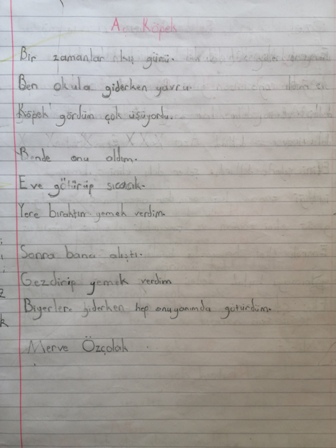 A Köpek
Bir zamanlar okul günü.
Ben okula giderken yavru
Köpek gördüm çok üşüyordu.
Bende onu aldım.
Eve götürüp sıcacık.
Yere bıraktım yemek verdim.
Sonra bana alıştı.
Gezdirip yemek verdim
Biyerlere giderken hep onu yanımda götürdüm.
Merve Özçolak